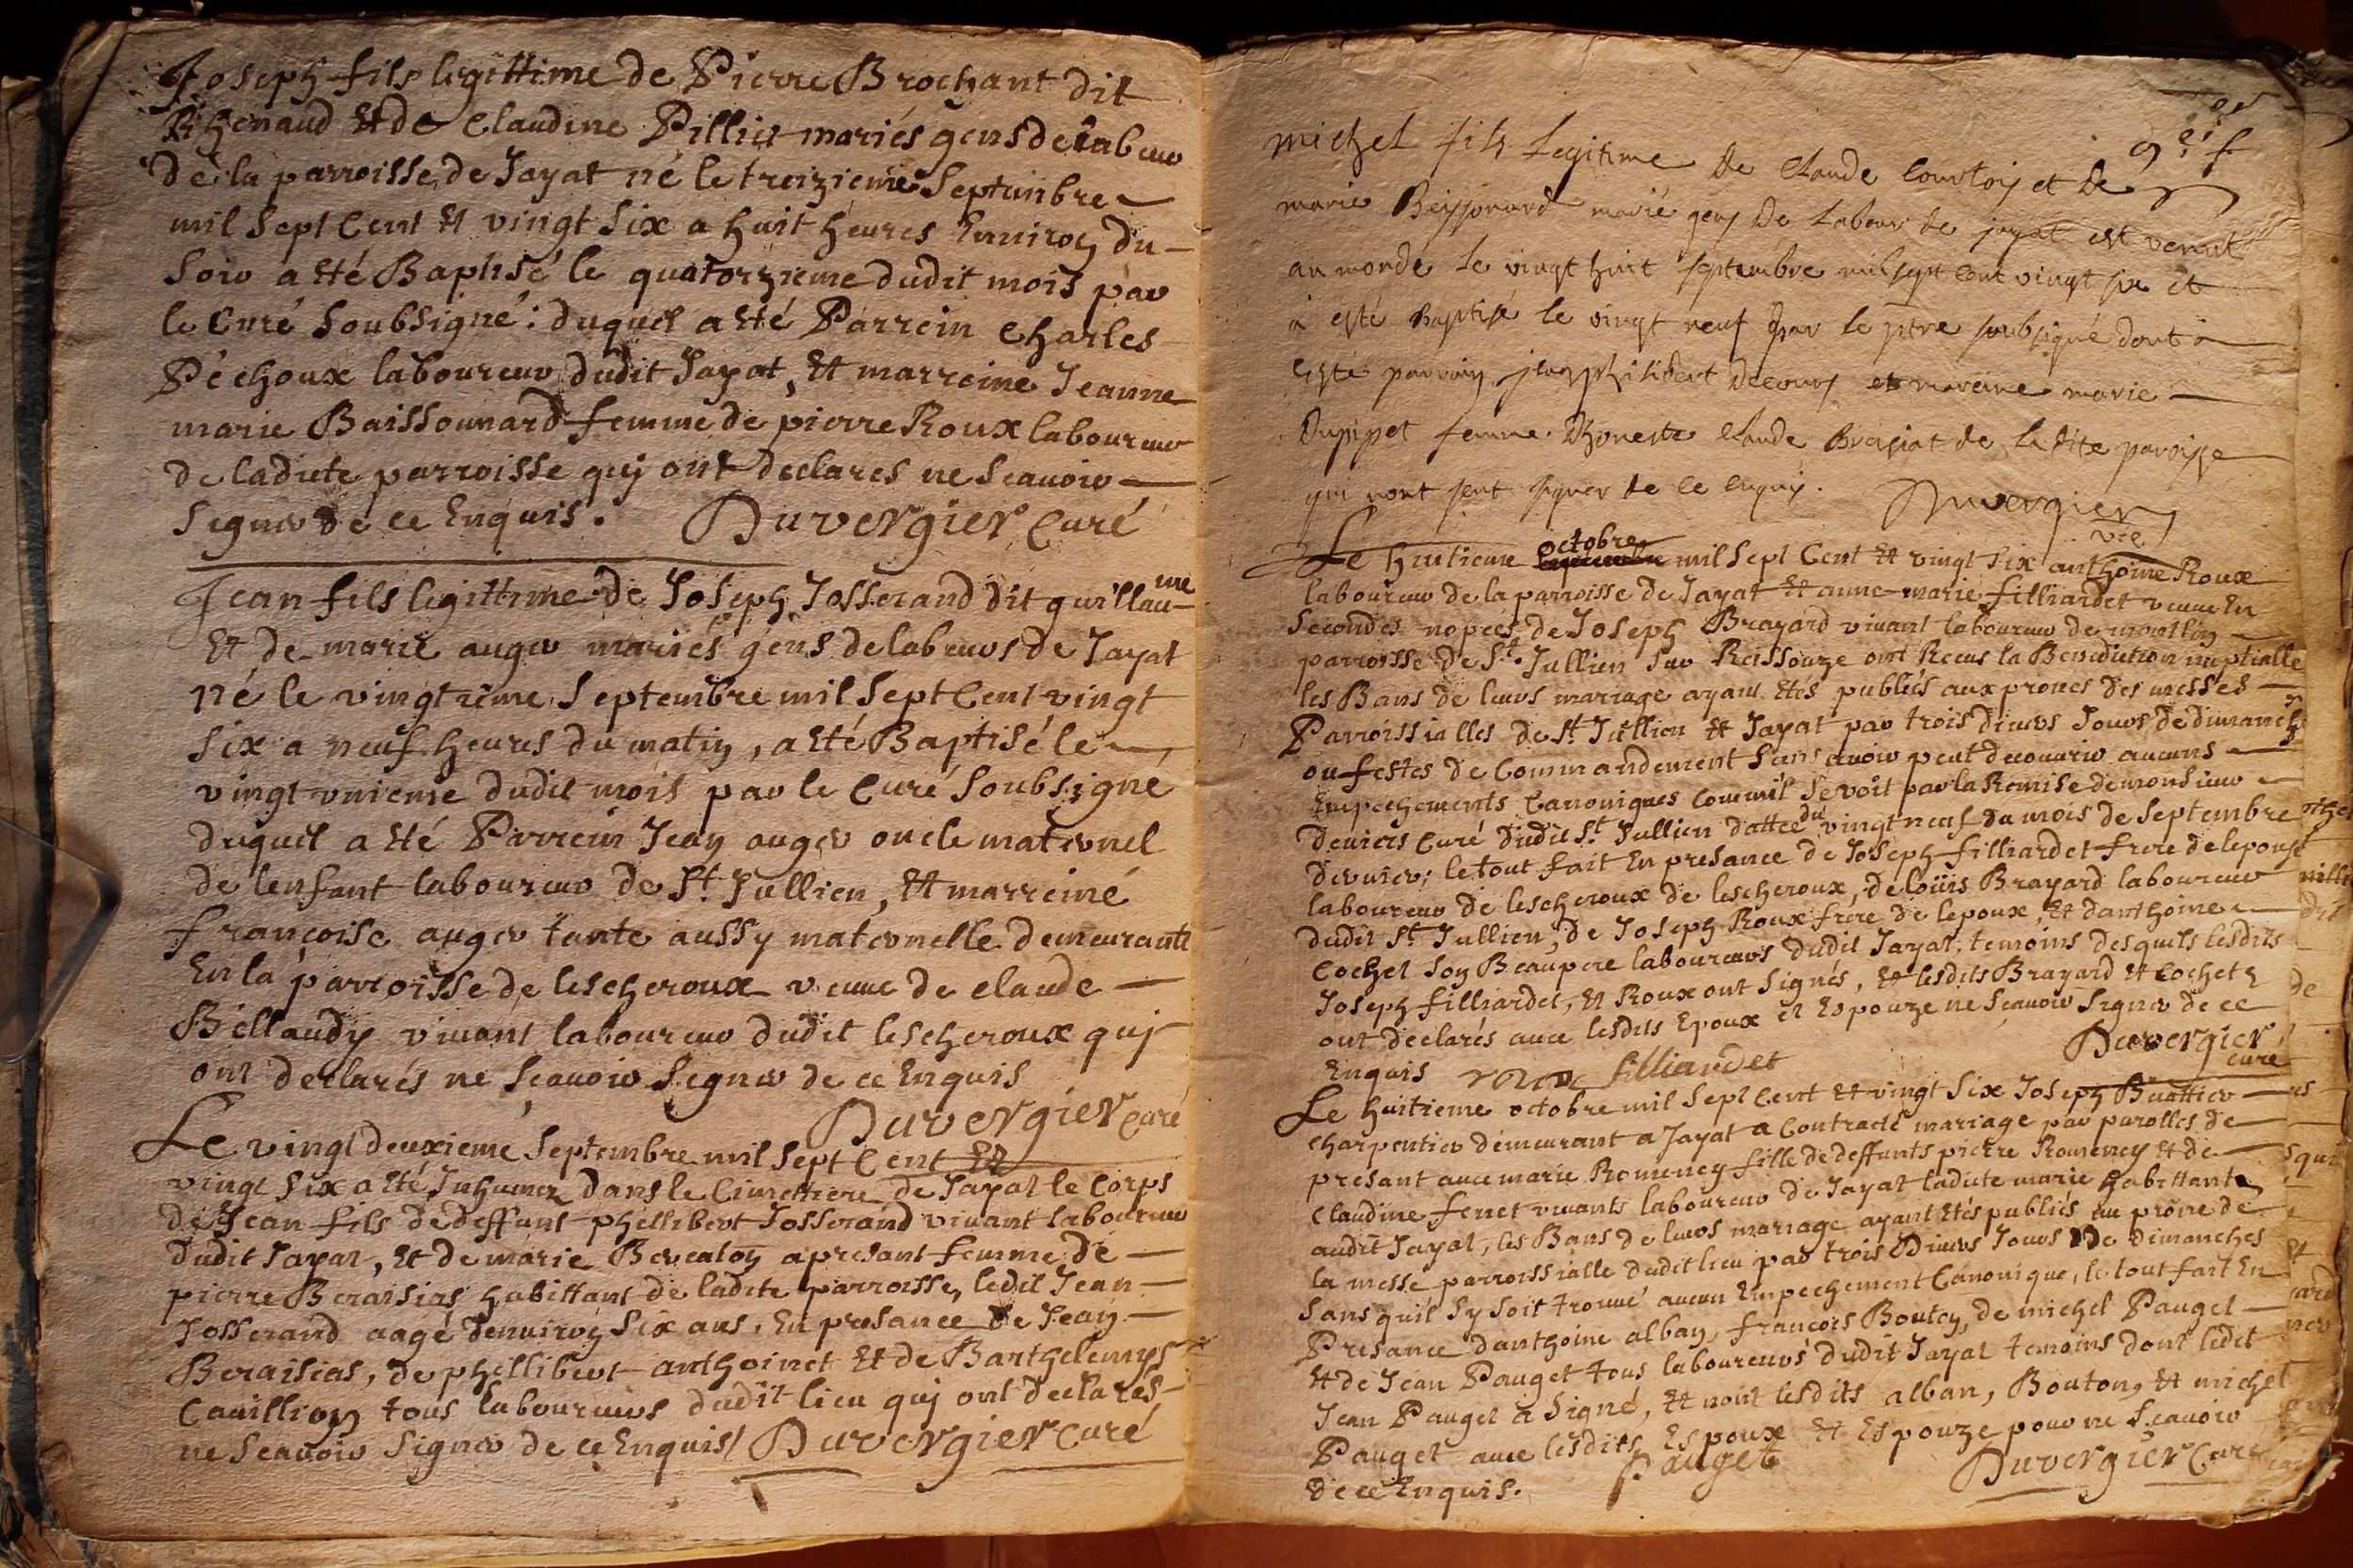 Joseph fils legittime de Pierre Brochant dit
Rhenaud Et de Claudine Pillict mariés gens de labeur
de la parroisse de Jayat né le treizieme Septembre
mil Sept Cent Et vingt Six a huit heures Enuiron du
Soir a Eté Baptisé le quatorzieme dudit mois par
le Curé Soubsigné : duquel a Eté Parrein Charles
Péchoux laboureur dudit Jayat, Et marreine Jeanne
marie Baissonnard femme de pierre Roux laboureur
de ladite parroisse quj ont declares ne Scauoir
Signer de ce Enquis. Duvergier Curé
Jean fils legittime de Joseph Josserand dit guillaume
Et de marie auger mariés gens de labeurs de Jayat
né le vingtieme Septembre mil Sept Cent vingt
Six a neuf heures du matin, a Eté Baptisé le
vingt vnieme dudit mois par le Curé Soubsigné
duquel a Eté Parrein Jean auger oncle maternel
de lenfant laboureur de St. Jullien, Et marreine
francoise auger tante aussy maternelle demeurante
En la parroisse de lescheroux veuue de claude
Billaudy viuant laboureur dudit lescheroux quj
ont declarés ne Scauoir Signer de ce Enquis
Duvergier Curé
Le vingt deuxieme Septembre mil Sept Cent Et
vingt Six a Eté Inhumez dans le Cimettiere de Jayat le Corps
de Jean fils de deffunt phillibert Josserand viuant laboureur
dudit Jayat, Et de marie apresant femme de
pierre Beraisias habittant de ladite parroisse, ledit Jean
Josserand aagé denuiron Six ans, En presance de Jean
Beraisias, de phillibert anthoinet Et de Barthelemys
Cauillion tous laboureurs dudit lieu quj ont declarés
ne Scauoir Signer de ce Enquis / Duvergier Curé
michel fils Legitime De Claude Courtois et De
marie Beyssonard marié gens De Labour de jayat est venut
au monde le vingt huit septembre mil sept cent vingt six et
à esté Baptisé le vingt neuf par le ptre soubsigné dont à
esté parrain jean philibert Decours et mareine marie
Dupipet femme Dhoneste Claude Breisiat de la dite paroisse
qui nont seut signer de ce enquis. Duvergier
vre
Le huitieme octobre mil Sept Cent Et vingt Six anthoine Roux
laboureur de la parroisse de Jayat Et anne-marie filliardet veuue En
Secondes nopces de Joseph Brayard viuant laboureur de
parroisse de St. Jullien Sur Reissouze ont Recus la Benediction nuptialle
les Bans de leurs mariage ayant Etés publiés aux prones des messes
Parroissialles de St. Jullien Et Jayat par trois diuers Jours de dimanche
ou festes de Commandement Sans auoir peut decouurir aucuns
Empechements Canoniques Comm'il Se voit par la Remise de monsieur
Deuiers Curé dudit St. Jullien dattee du vingt neuf du mois de Septembre
dernier; le tout fait En presance de Joseph filliardet frere de lepouse
laboureur de lescheroux de lescheroux, de loüis Brayard laboureur
dudit St. Jullien, de Joseph Roux frere de lepoux, Et danthoine
Cochet Son Beaupere laboureurs dudit Jayat, temoins desquels lesdits
Joseph filliardet, Et Roux ont Signés, Et lesdits Brayard Et Cochet
ont declarés auec lesdits Epoux Et Espouze ne Scauoir Signer de ce
Enquis roux filliardet Duvergier
curé
Le huitieme octobre mil Sept Cent Et vingt Six Joseph Buattier
charpentier demeurant a Jayat a Contracté mariage par parolles de
presant auec marie Romeney fille de deffunts pierre Romeney Et de
Claudine ferret viuants laboureur de Jayat ladite marie habittante
audit Jayat, les Bans de leurs mariage ayant Etés publiés au prone de
la messe parroissialle dudit lieu par trois Diuers Jours De Dimanches
Sans quil Sy Soit trouué aucun Empechement Canonique, le tout fait En
Presance danthoine alban, francois Bouton, de michel Pauget
Et de Jean Pauget tous laboureurs dudit Jayat temoins dont ledit
Jean Pauget a Signé, Et nont lesdits alban, Bouton, Et michel
Pauget auec lesdits Espoux Et Espouze pour ne Scauoir
de ce Enquis. Pauget Duvergier Curé